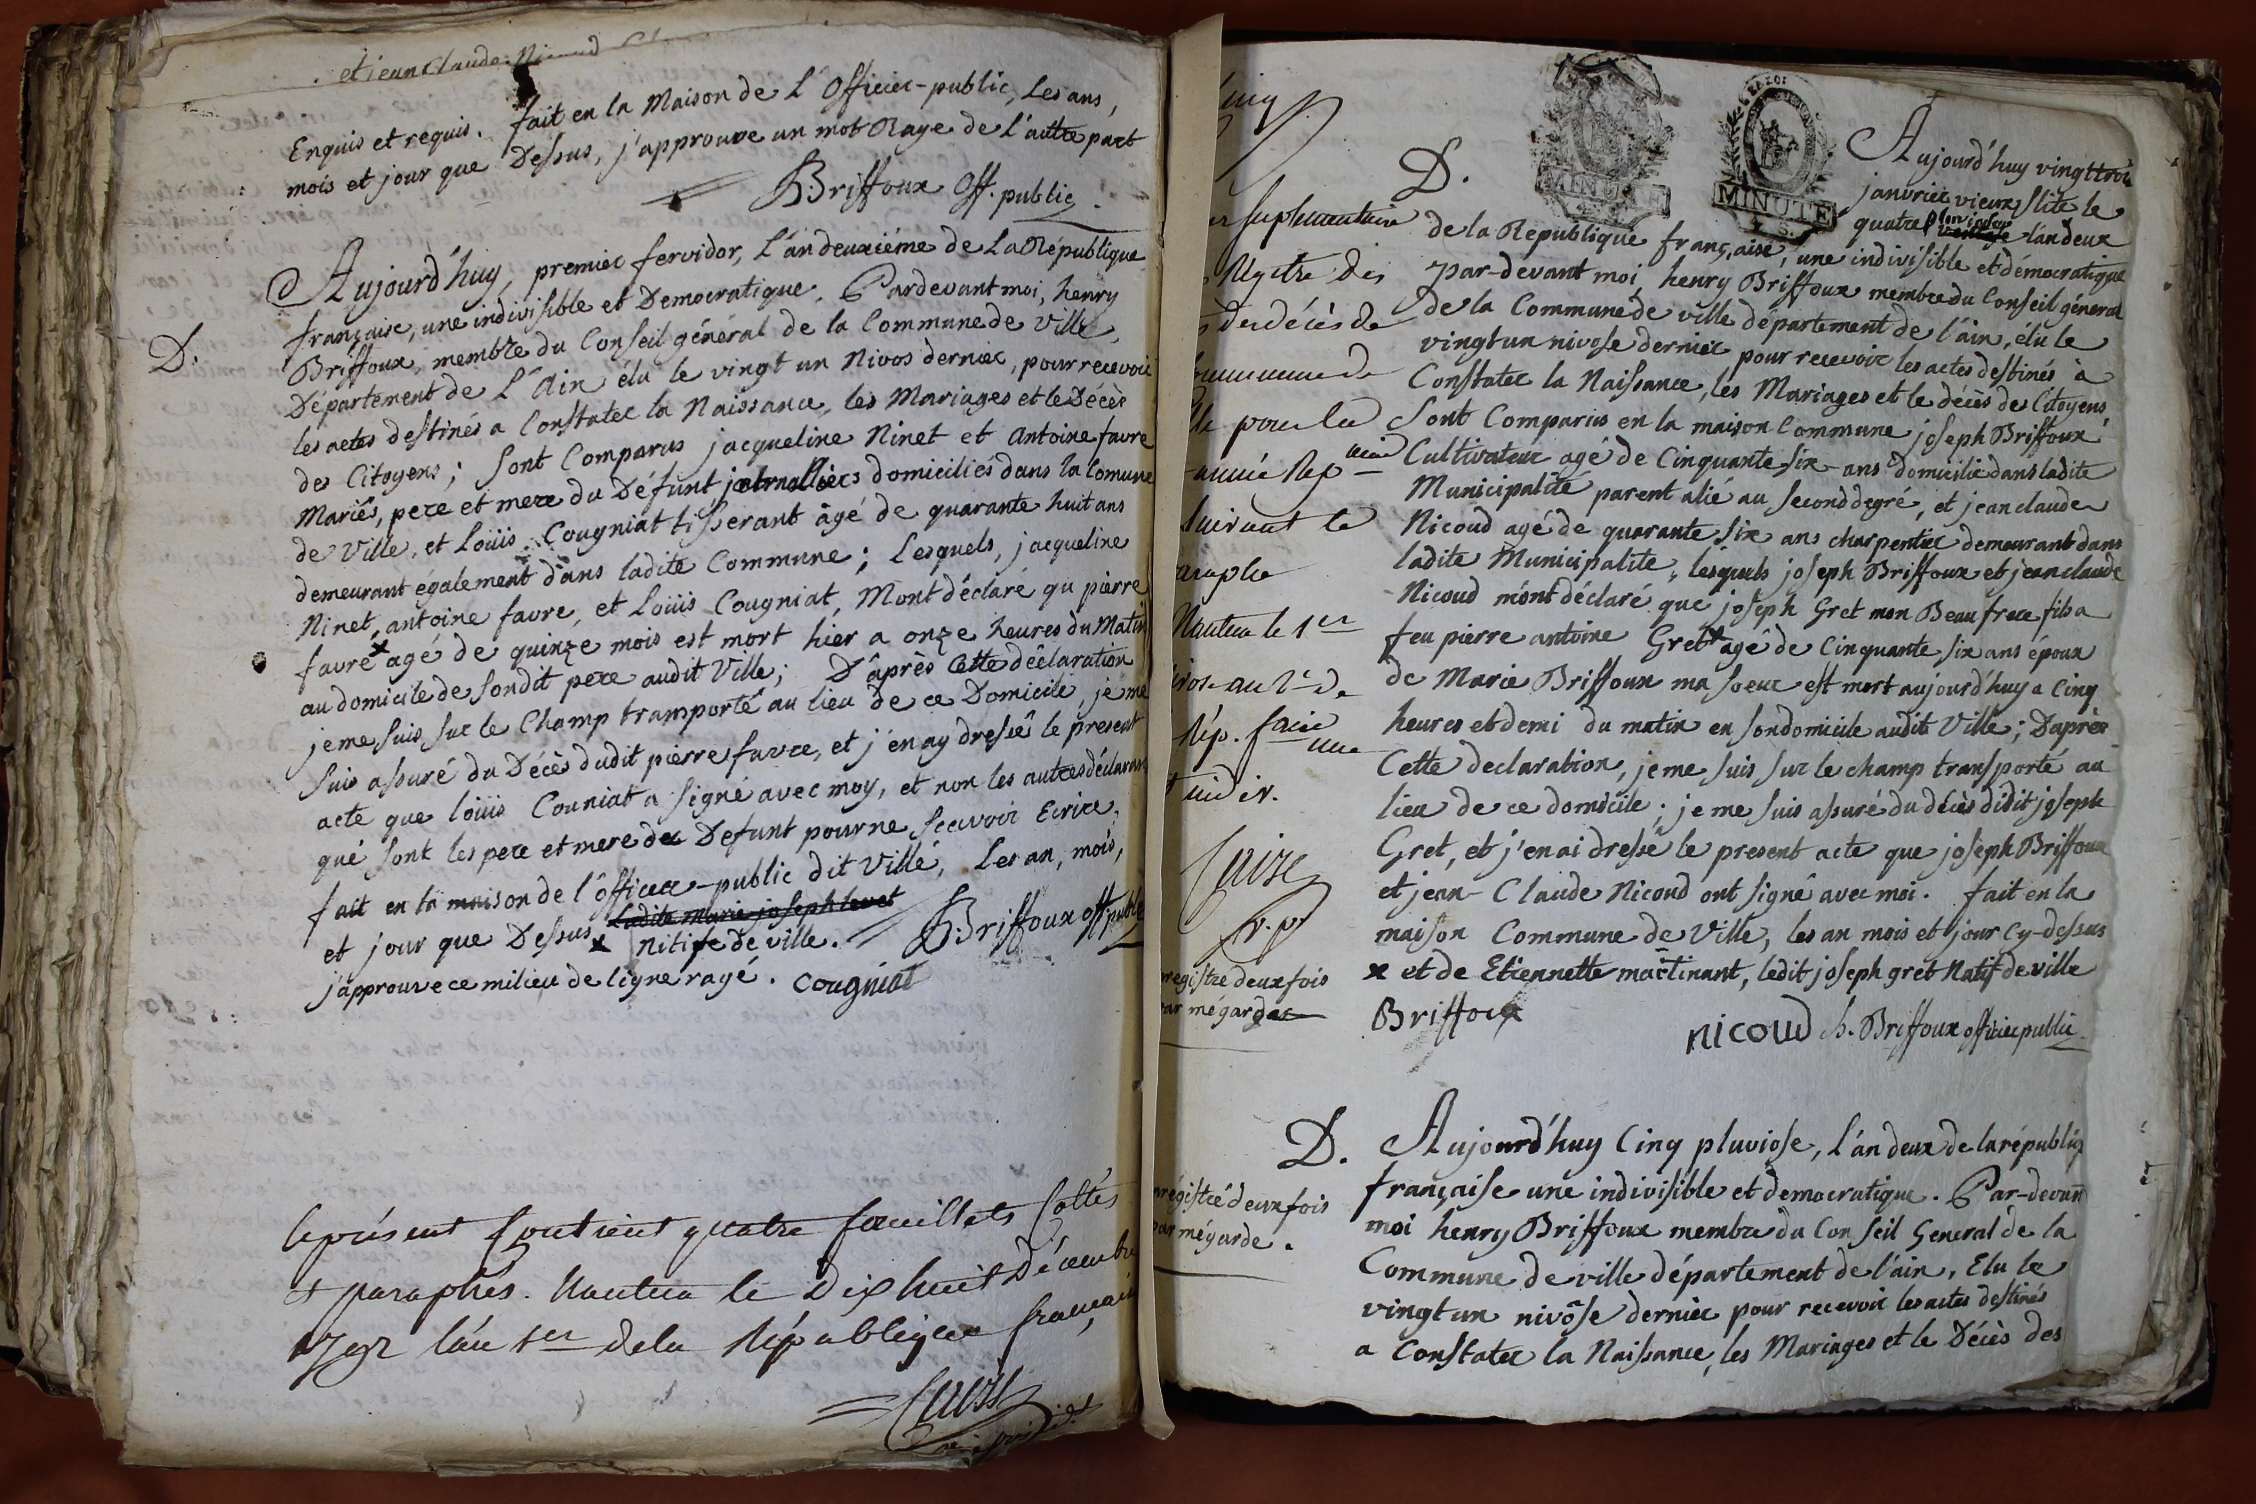 et jean Claude Nicoud
Enquis et requis. fait en la Maison de L'Officier-public, Les ans,
mois et jour que Dessus, j'approuve un mot Rayé de L'autre part
B. Briffoux Off. public
D.
Aujourd'huy, premier fervidor, L'an deuxiéme de La République
française, une indivisible et Democratique, Pardevant moi, henry
Briffoux, membre du Conseil général de la Commune de Ville,
Département de L'Ain élu le vingt un Nivos dernier, pour recevoir
les actes destinés a Constater la Naissance, les Mariages et le Décès
des Citoyens; sont Comparus jacqueline Ninet et Antoine favre
Mariés, pere et mere du Défunt journalliers domiciliés dans la Comune
de Ville, et Loüis Cougniat tisserant âgé de quarante huit ans
demeurant également dans ladite Commune; Lesquels, jacqueline
Ninet, antoine favre, et Loüis Cougniat, M'ont déclaré qu pierre
favre x agé de quinze mois est mort hier a onze heures du Matin
au domicile de sondit pere audit Ville; D'âprès Cette déclaration
je me suis sur le Champ transporté au lieu de ce Domicile, je me
suis assuré du Décès dudit pierre favre, et j'en ay dressé le present
acte que loüis Couniat a signé avec moy, et non les autres déclarans
qué sont les pere et mere du Defunt pour ne scavoir Ecrire,
fait en la maison de l'officier-public dit Ville, Les an, mois,
et jour que Dessus. ladite Marie joseph levet
x Nitife de ville. B. Briffoux off. public
j'approuve ce milieu de ligne rayé. Cougniat
le présent Contient quatre feuillets Cottés
& paraphés. Nantua le Dix huit Décembre
1792 l'an 1er de la République française
Cuisse
suplementaire
Régistre des
des décès de
commune de
pour la
année Rep.
Suivant le
Nantua le 1er
au 2e de
Rép. fçaise une
indiv.
Cuisse
v. p.
registre deux fois
par mégarde
D.
MINUTE
MINUTE
Aujourd'huy vingt trois
janvrier vieux stile le
quatre pluviose ventose l'an deux
de la République française, une indivisible et démocratique
par-devant moi, henry Briffoux membre du Conseil général
de la Commune de ville département de l'ain, élu le
vingt un nivose dernier pour recevoir les actes destinés à
Constater la Naissance, les Mariages et le décès des Citoyens
Sont Comparus en la maison Commune joseph Briffoux
Cultivateur agé de Cinquante six ans domicilié dans ladite
Municipalité parent alié au second degré, et jean claude
Nicoud agé de quarante six ans charpentier demeurant dans
ladite Municipalite, lesquels joseph Briffoux et jean claude
Nicoud m'ont déclaré que joseph Gret mon Beau frere fils a
feu pierre antoine Gret x agé de Cinquante six ans époux
de Marie Briffoux ma soeur est mort aujourd'huy a Cinq
heures et demi du matin en son domicile audit Ville; D'après
Cette declaration, je me suis sur le champ transporté au
lieu de ce domicile; je me suis assuré du décès didit joseph
Gret, et j'en ai dressé le present acte que joseph Briffoux
et jean-Claude Nicoud ont signé avec moi. fait en la
maison Commune de Ville, les an mois et jour Cy-dessus
x et de Etiennette martinant, ledit joseph gret Natif de ville
Briffoux
nicoud h. Briffoux officier public
D.
enrégistré deux fois
par mégarde.
Aujourd'huy Cinq pluviose, L'an deux de la républiq
française une indivisible et democratique. Par-devant
moi henry Briffoux membre du Conseil General de la
Commune de ville département de l'ain, Elu le
vingt un nivôse dernier pour recevoir les actes destinés
a Constater la Naissance, les Mariages et le Décès des